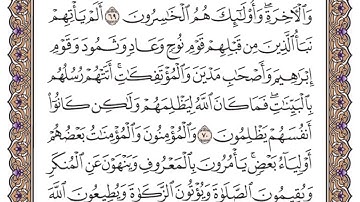 وَٱلْأَخِرَةِ وَأُو۟لَٰٓئِكَ هُمُ ٱلْخَٰسِرُونَ ٦٩ أَلَمْ يَأْتِهِمْ
نَبَأُ ٱلَّذِينَ مِن قَبْلِهِمْ قَوْمِ نُوحٍ وَعَادٍ وَثَمُودَ وَقَوْمِ
إِبْرَٰهِيمَ وَأَصْحَٰبِ مَدْيَنَ وَٱلْمُؤْتَفِكَٰتِ أَتَتْهُمْ رُسُلُهُم
بِٱلْبَيِّنَٰتِ فَمَا كَانَ ٱللَّهُ لِيَظْلِمَهُمْ وَلَٰكِن كَانُوٓا۟
أَنفُسَهُمْ يَظْلِمُونَ ٧٠ وَٱلْمُؤْمِنُونَ وَٱلْمُؤْمِنَٰتُ بَعْضُهُمْ
أَوْلِيَآءُ بَعْضٍ يَأْمُرُونَ بِٱلْمَعْرُوفِ وَيَنْهَوْنَ عَنِ ٱلْمُنكَرِ
وَيُقِيمُونَ ٱلصَّلَوٰةَ وَيُؤْتُونَ ٱلزَّكَوٰةَ وَيُطِيعُونَ ٱللَّهَ